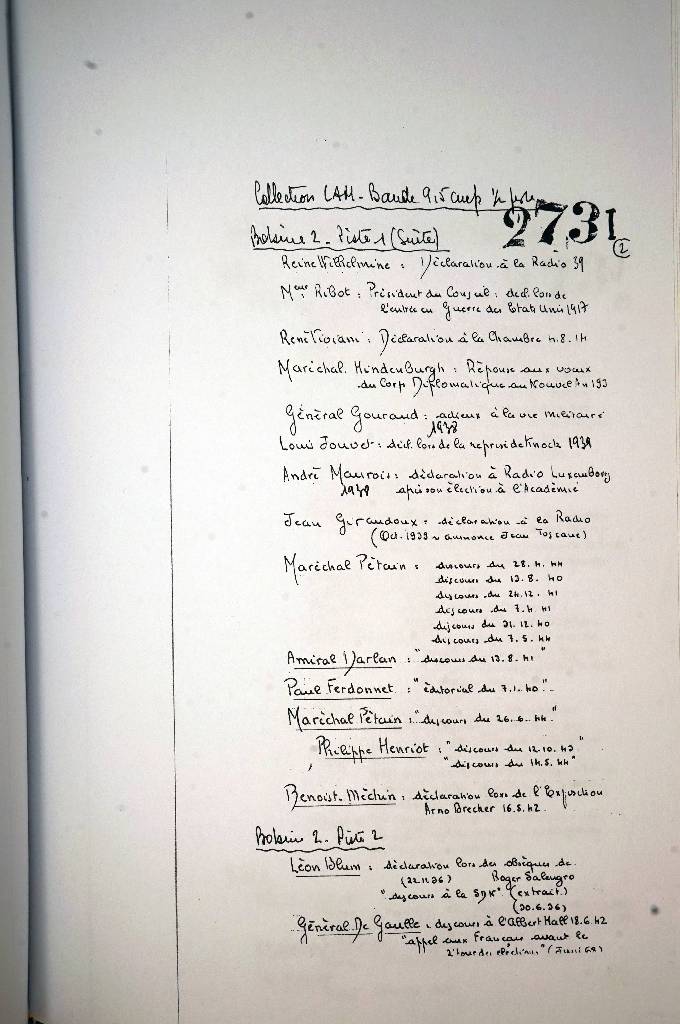 Collection LAM - Bande 9,5 cm/s ½ piste
2731
Bobine 2 - Piste 1 (Suite)
②
Reine Wilhelmine : Déclaration à la Radio 39
Meur Ribot : Président du Conseil : décl. lors de
l'entrée en Guerre des Etats Unis 1917
René Viviani : Déclaration à la Chambre 4.8.14
Maréchal Hindenburgh : Réponse aux voeux
du Corp Diplomatique au Nouvel An 193
Général Gouraud : adieux à la vie militaire
1938
Louis Jouvet : décl. lors de la reprise de Knock 1939
André Maurois : déclaration à Radio Luxembourg
1939 après son élection à l'Académie
Jean Giraudoux : déclaration à la Radio
(Oct. 1939 annonce Jean Toscane)
Maréchal Pétain : discours du 28.4.44
discours du 13.8.40
discours du 24.12.41
discours du 7.4.41
discours du 31.12.40
discours du 7.5.44
Amiral Darlan : "discours du 13.8.41"
Paul Ferdonnet : "éditorial du 7.1.40"
Maréchal Pétain : "discours du 26.6.44"
Philippe Henriot : "discours du 12.10.43"
"discours du 14.5.44"
Benoist-Méchin : déclaration lors de l'Exposition
Arno Brecker 16.5.42.
Bobine 2 - Piste 2
Léon Blum : déclaration lors des obsèques de
(22.11.36) Roger Salengro
"discours à la SDN" (extrait)
(30.6.36)
Général De Gaulle : discours à l'Albert Hall 18.6.42
"appel aux Français avant le
2e tour des élections" (Juin 68)